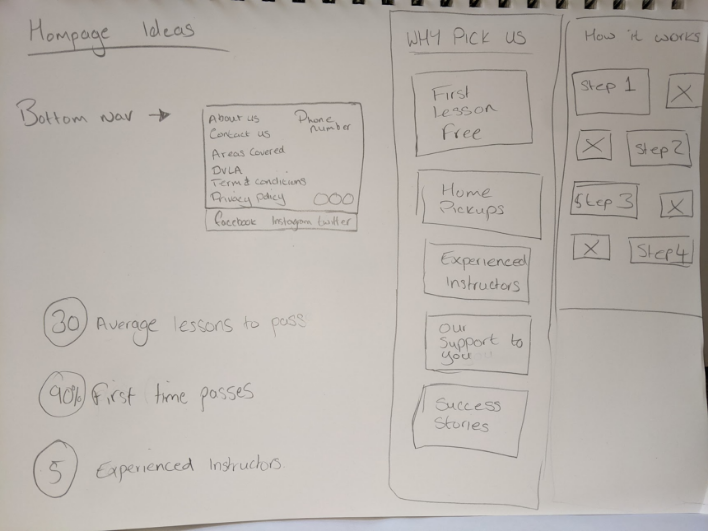 Hompage Ideas
Bottom nav →
About us
Phone
number
Contact us
Areas Covered
DVLA
Term & conditions
Privacy policy
facebook Instagram twitter
30 Average lessons to pass
90% First time passes
5 Experienced Instructors
WHY PICK US
First
Lesson
Free
Home
Pickups
Experienced
Instructors
Our
Support to
you
Success
Stories
How it works
Step 1
X
X
Step 2
Step 3
X
X
Step 4